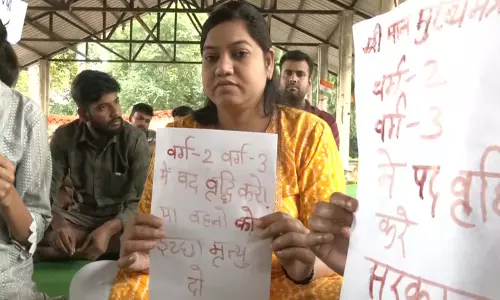 वर्ग-2 वर्ग-3
में पद वृद्धि करो
या बहनों को
इच्छा मृत्यु
दो
मुख्यमं
वर्ग-2
वर्ग-3
में पद वृद्धि
करे
सरकार